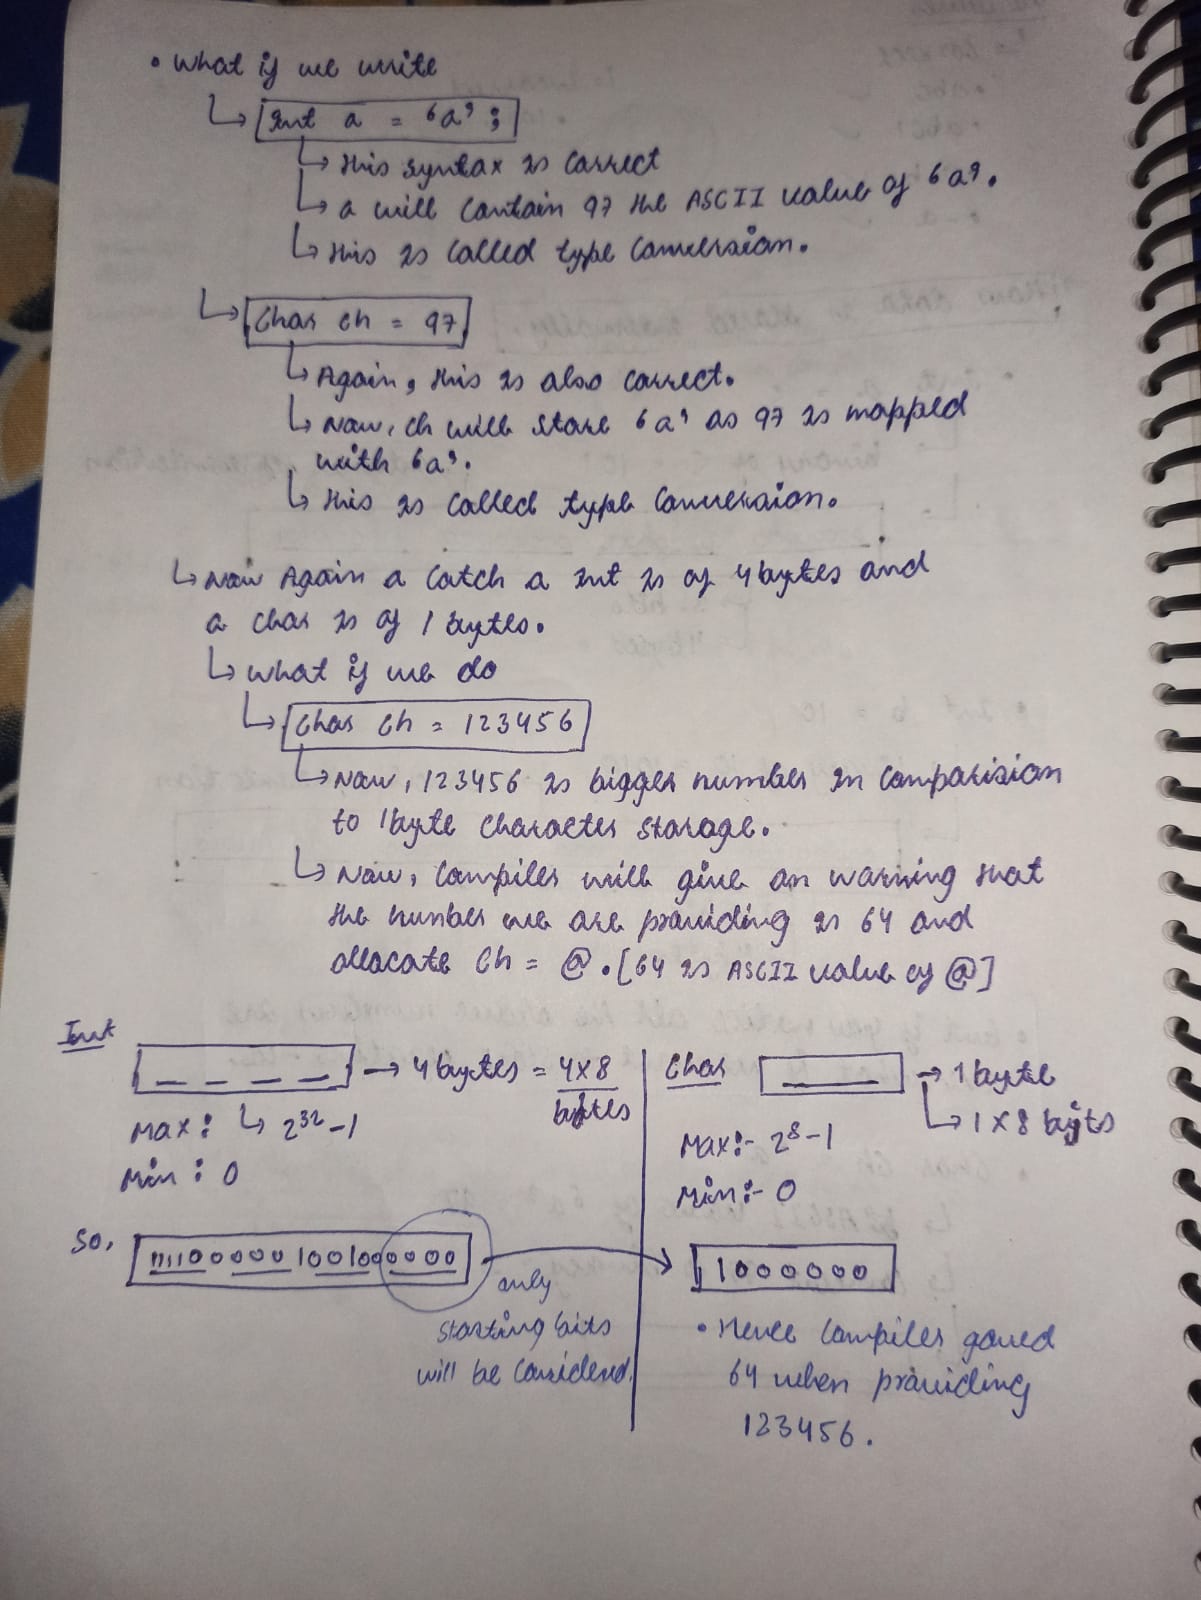 • What if we write
↳ Int a = 'a';
↳ this syntax is correct
↳ a will contain 97 the ASCII value of 'a'.
↳ this is called type conversion.
↳ Char ch = 97
↳ Again, this is also correct.
↳ Now, ch will store 'a' as 97 is mapped
with 'a'.
↳ this is called type conversion.
↳ Now Again a catch a int is of 4 bytes and
a char is of 1 bytes.
↳ what if we do
↳ Char Ch = 123456
↳ Now, 123456 is bigger number in comparision
to 1 byte character storage.
↳ Now, compiler will give an warning that
the number we are providing is 64 and
allocate Ch = @. [64 is ASCII value of @]
Int
→ 4 bytes = 4×8
bytes
Max: ↳ 2^32 - 1
Min : 0
Char → 1 byte
↳ 1 × 8 bits
Max:- 2^8 - 1
Min:- 0
So,
11110000010010000000
only
starting bits
will be considerd.
1000000
• Hence compiler gaved
64 when providing
123456.